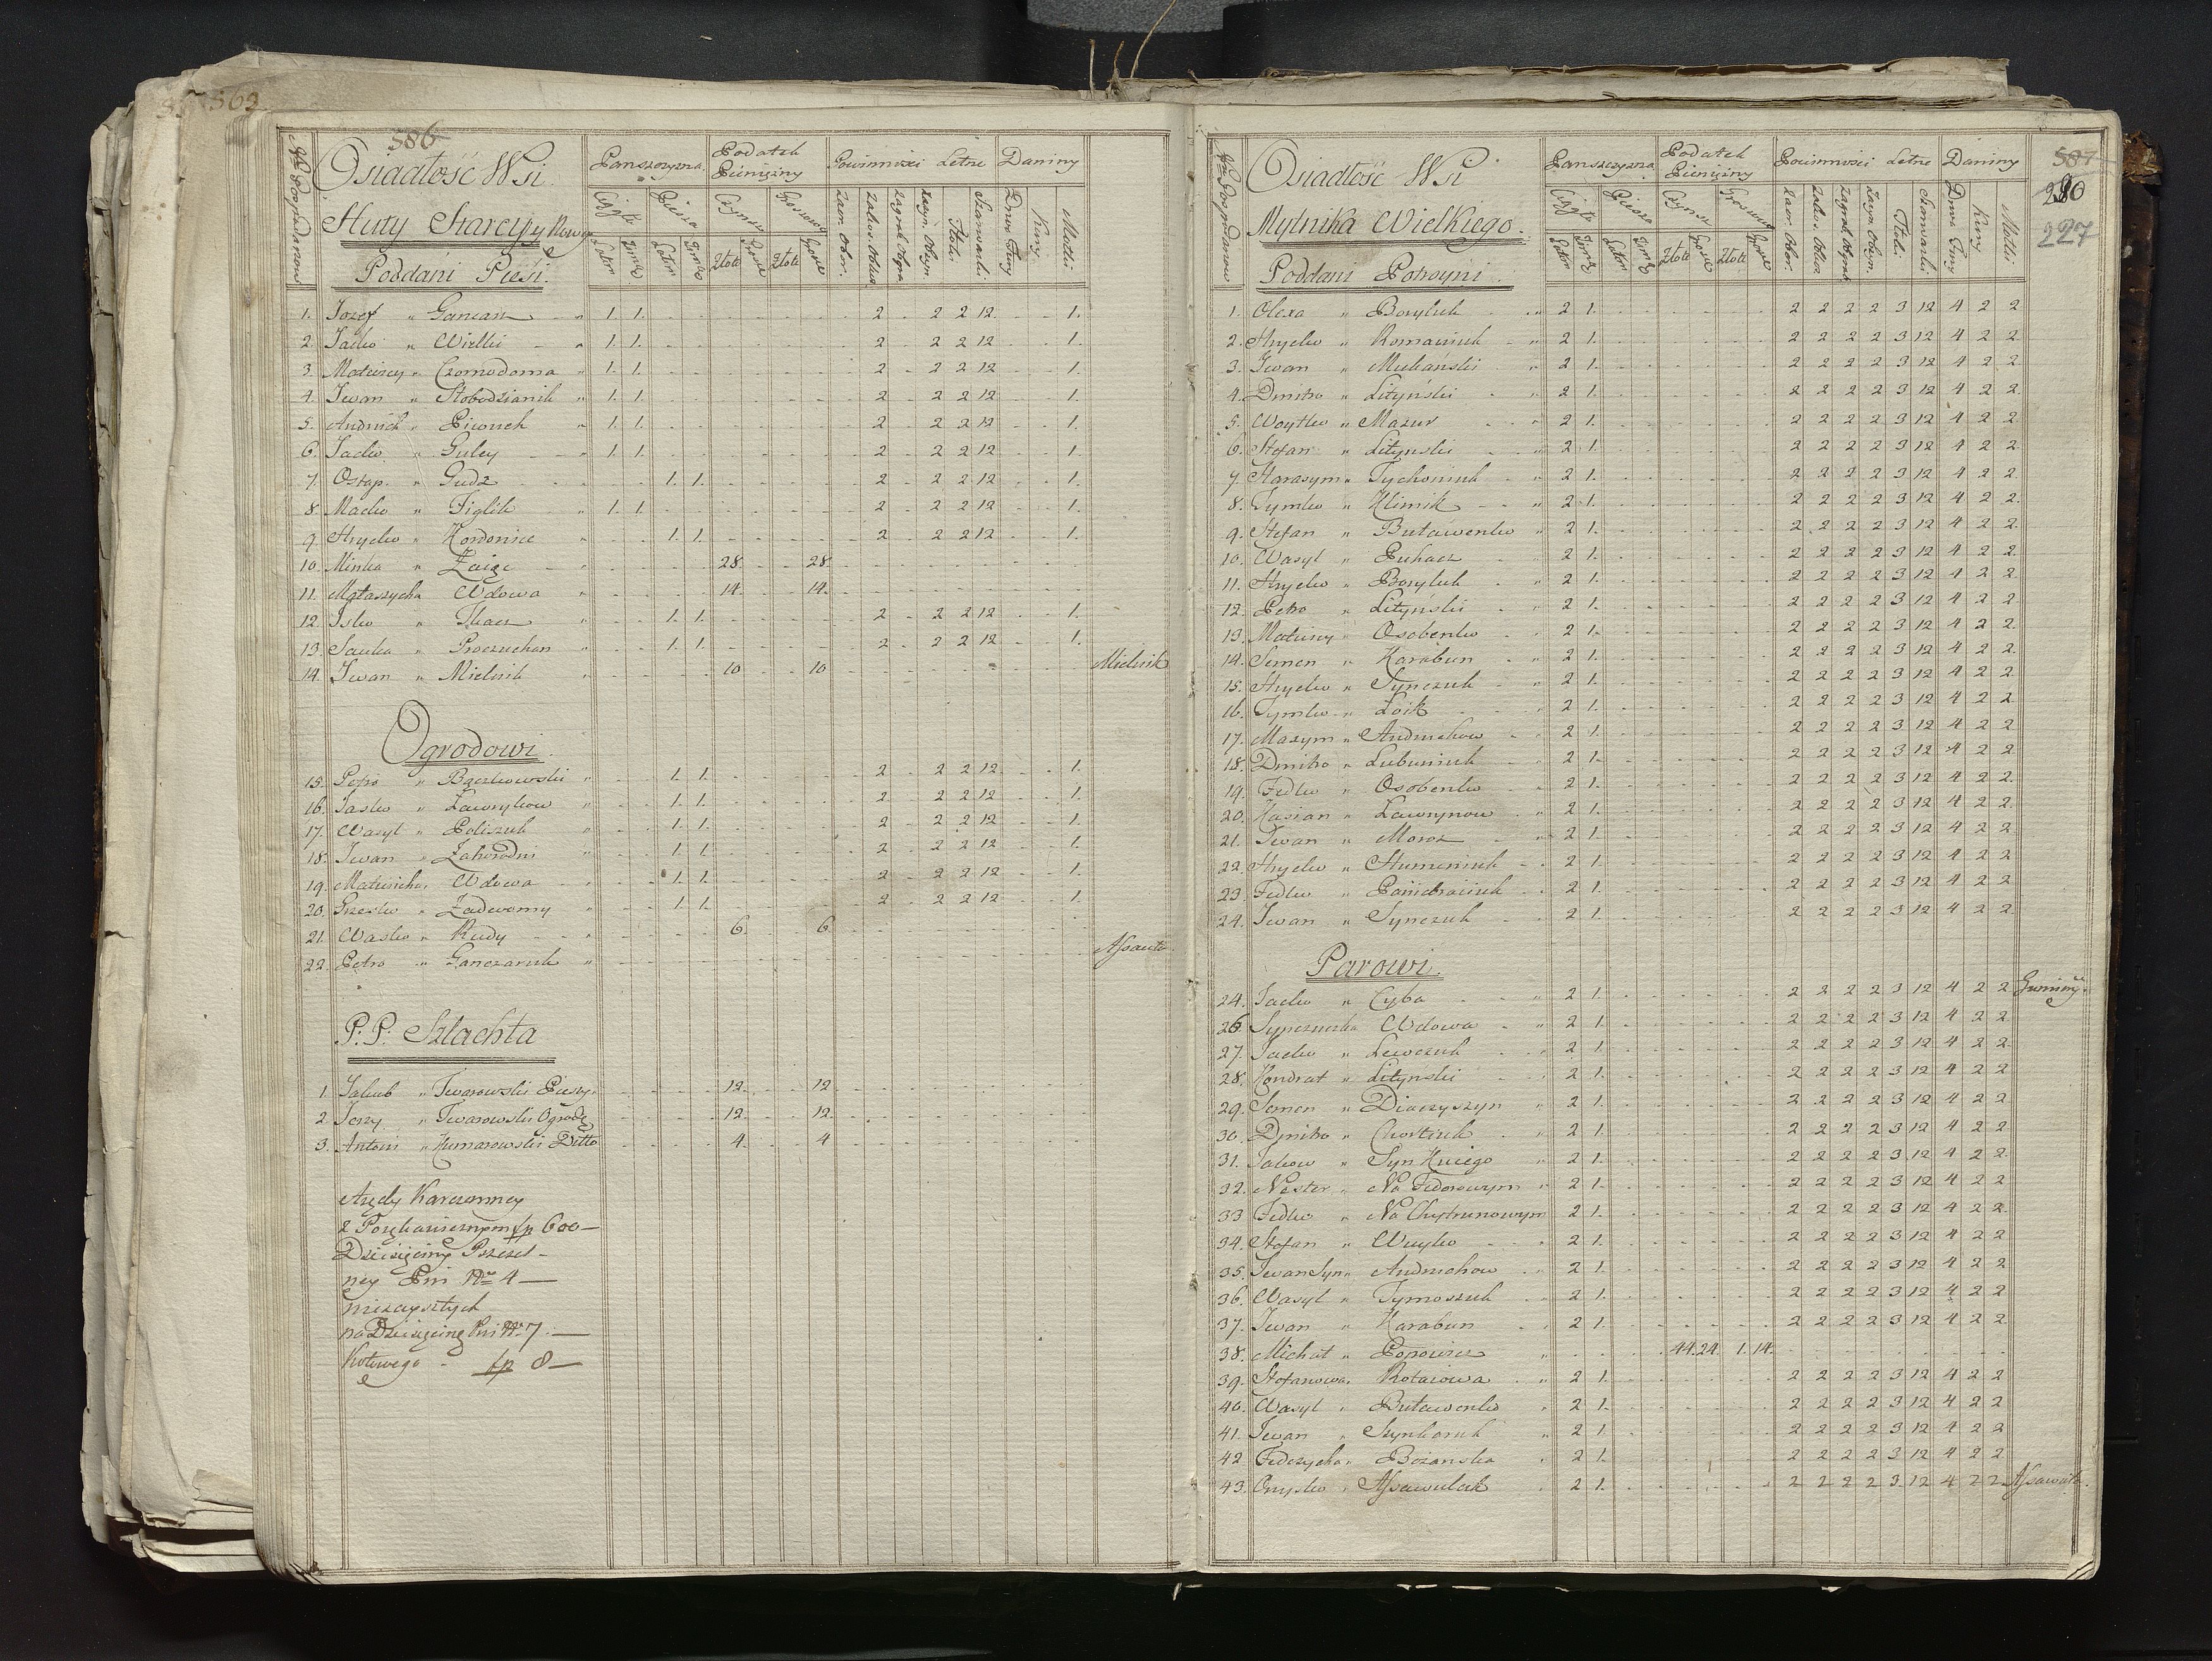 562
586
Nro Gospodarzow
Osiadłość Wsi
Huty Starey y Nowey
Poddani Piesi.
Panszczyzna
Podatek Pieniężny
Powinnosci Letne
Daniny
Ciągłe Piesza Czynsz Groszowy
Złote Grosze Złote Grosze
Motki
1. Jozef " Gancarz " 1. 1. 2 2 2 12 1.
2. Jacko " Wielki " 1. 1. 2 2 2 12 1.
3. Matwiey " Czornodoma " 1. 1. 2 2 2 12 1.
4. Iwan " Słobodzianik " 1. 1. 2 2 2 12 1.
5. Andruch " Piwneh " 1. 1. 2 2 2 12 1.
6. Jacko " Guley " 1. 1. 2 2 2 12 1.
7. Ostap. " Gudz 1. 1. 2 2 2 12 1.
8. Macko " Figlik " 1. 1. 2 2 2 12 1.
9. Hrycko " Hordonice " 1. 1. 2 2 2 12 1.
10. Minka " Zaięc 28. 28.
11. Małaszycha Wdowa " 14. 14.
12. Isko " Tkacz 1. 1. 2 2 2 12 1.
13. Sauka " Proczuchan " 1. 1. 2 2 2 12 1.
14. Iwan " Mielnik " 10 10 Mielnik
Ogrodowi
15. Petro " Bączkowski " 1. 1. 2 2 2 12 1.
16. Jasko " Ławrykow " 1. 1. 2 2 2 12 1.
17. Wasyl " Poliszuk " 1. 1. 2 2 2 12 1.
18. Iwan " Zahorodni " 1. 1. 2 2 2 12 1.
19. Matwiicha " Wdowa " 1. 1. 2 2 2 12 1.
20. Grzesko " Zadworny " 1. 1. 2 2 2 12 1.
21. Wasko " Rudy " 6. 6.
22. Petro " Ganczaruk " Assauła
P.P. Szlachta
1. Jakub " Twarowski Pieszy. 12. 12.
2. Jerzy " Twarowski Ogrod. 12. 12.
3. Antoni " Humarowski Ditto 4. 4
Arędy Karczemney
z Poręhawicznym fp 600—
Dziesięciny Pszczel-
ney Pni Nro 4—
nieczystych
na Dziesięcinę Pni Nro 7.—
Kotowego - fp 8—
587
280
227
Nro Gospodarzow
Osiadłość Wsi
Mytnika Wielkiego.
Poddani Potroyni.
Panszczyzna
Podatek Pieniężny
Powinnosci Letne
Daniny
Ciągłe Piesza Czynsz Groszowy
Złote Grosze Złote Grosze
Kury Motki
1. Olexa " Boryluk " 2 1. 2 2 2 2 3 12 4 2 2
2. Hrycko " Romaniuk " 2 1. 2 2 2 2 3 12 4 2 2
3. Iwan " Muliański " 2 1. 2 2 2 2 3 12 4 2 2.
4. Dmitro " Lityński " 2 1. 2 2 2 2 3 12 4 2 2
5. Woytko " Mazur " 2 1. 2 2 2 2 3 12 4 2 2.
6. Stefan " Lityński " 2 1. 2 2 2 2 3 12 4 2 2.
7. Harasym " Tychoniuk " 2 1. 2 2 2 2 3 12 4 2 2.
8. Tymko " Klimik " 2 1. 2 2 2 2 3 12 4 2 2.
9. Stefan " Butawenko " 2 1. 2 2 2 2 3 12 4 2 2.
10. Wasyl " Puhacz " 2 1. 2 2 2 2 3 12 4 2 2.
11. Hrycko " Boryluk " 2 1. 2 2 2 2 3 12 4 2 2.
12. Petro " Lityński " 2 1. 2 2 2 2 3 12 4 2 2.
13. Matwiy " Osobenko " 2 1. 2 2 2 2 3 12 4 2 2.
14. Semen " Karabun " 2 1. 2 2 2 2 3 12 4 2 2.
15. Hrycko " Synczuk " 2 1. 2 2 2 2 3 12 4 2 2.
16. Tymko " Loik " 2 1. 2 2 2 2 3 12 4 2 2.
17. Maxym " Andruchow " 2 1. 2 2 2 2 3 12 4 2 2
18. Dmitro " Lubuniuk " 2 1. 2 2 2 2 3 12 4 2 2
19. Fedko " Osobenko " 2 1. 2 2 2 2 3 12 4 2 2.
20. Kasian " Ławrynow " 2 1. 2 2 2 2 3 12 4 2 2.
21. Iwan " Moroz " 2 1. 2 2 2 2 3 12 4 2 2
22. Hrycko " Humeniuk " 2 1. 2 2 2 2 3 12 4 2 2
23. Fedko " Paniebraciuk " 2 1. 2 2 2 2 3 12 4 2 2
24. Iwan " Synczuk " 2 1. 2 2 2 2 3 12 4 2 2
Parowi.
24. Jacko " Cyba " 2 1. 2 2 2 2 3 12 4 2 2 Gumieny.
26. Synczuczka Wdowa " 2 1. 2 2 2 2 3 12 4 2 2
27. Jacko " Lewczuk " 2 1. 2 2 2 2 3 12 4 2 2.
28. Kondrat " Lityński " 2 1. 2 2 2 2 3 12 4 2 2
29. Semen " Diaczyszyn " 2 1. 2 2 2 2 3 12 4 2 2
30. Dmitro " Chortiuk " 2 1. 2 2 2 2 3 12 4 2 2
31. Jakow " Syn Kuiego " 2 1. 2 2 2 2 3 12 4 2 2.
32. Nester " Na Fedorowym " 2 1. 2 2 2 2 3 12 4 2 2
33 Fedko " Na Chytrunowym 2 1. 2 2 2 2 3 12 4 2 2.
34. Stefan " Wuyko " 2 1. 2 2 2 2 3 12 4 2 2
35. Iwan Syn " Andruchow " 2 1. 2 2 2 2 3 12 4 2 2
36. Wasyl " Tymoszuk " 2 1. 2 2 2 2 3 12 4 2 2
37. Iwan " Karabun " 2 1. 2 2 2 2 3 12 4 2 2
38. Michał " Popowicz " 44.24. 1.14.
39. Stefanowa " Rotarowa " 2 1. 2 2 2 2 3 12 4 2 2
40. Wasyl " Butawenko " 2 1. 2 2 2 2 3 12 4 2 2
41. Iwan " Szynkaruk " 2 1. 2 2 2 2 3 12 4 2 2
42 Fedczycha " Bożanska " 2 1. 2 2 2 2 3 12 4 2 2.
43. Onysko " Assawulak " 2 1. 2 2 2 2 3 12 4 2 2 Assawuła.